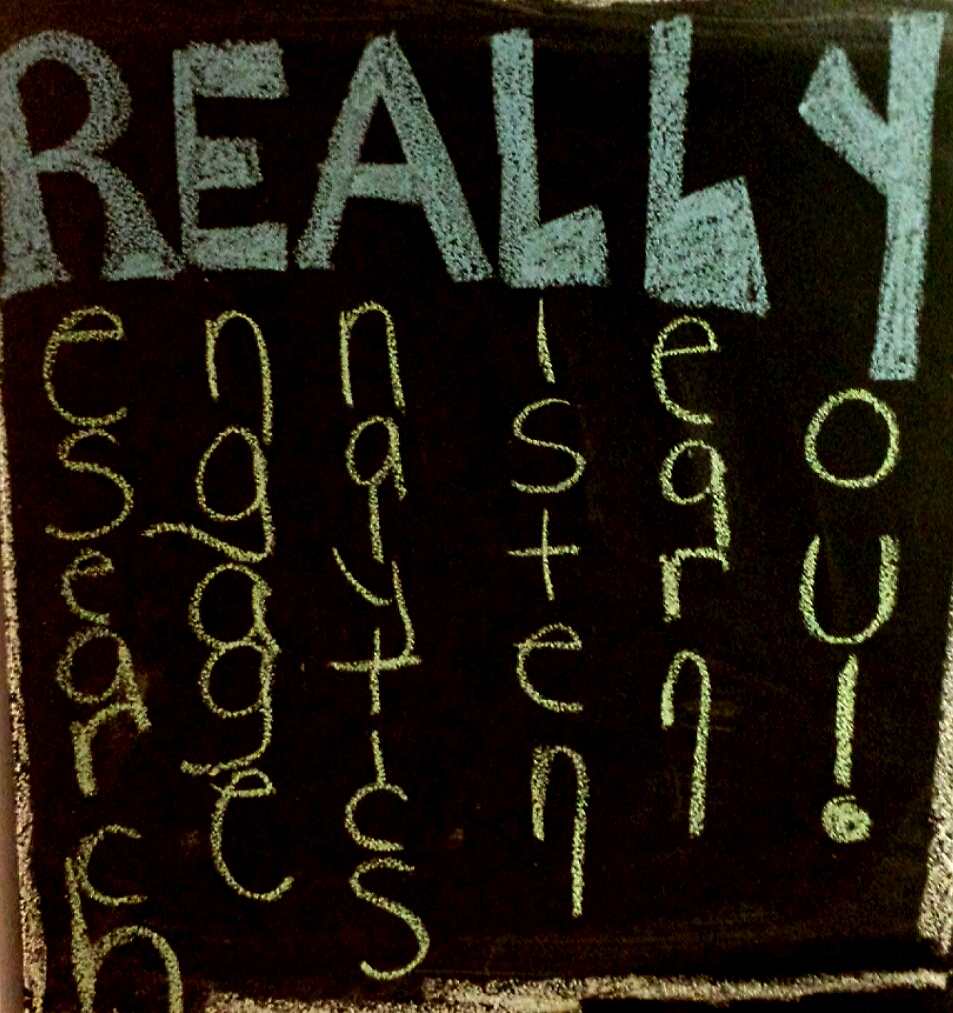 REALLY
esearch
ngage
nalytics
isten
earn
OU!